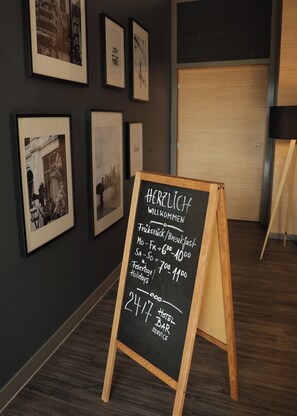 HERZLICH
WILLKOMMEN
Frühstück/Breakfast
Mo-Fr 6:00-10:00
Sa-So 7:00-11:00
&
Feiertage/
Holidays
24/7 HOTEL
BAR
SERVICE